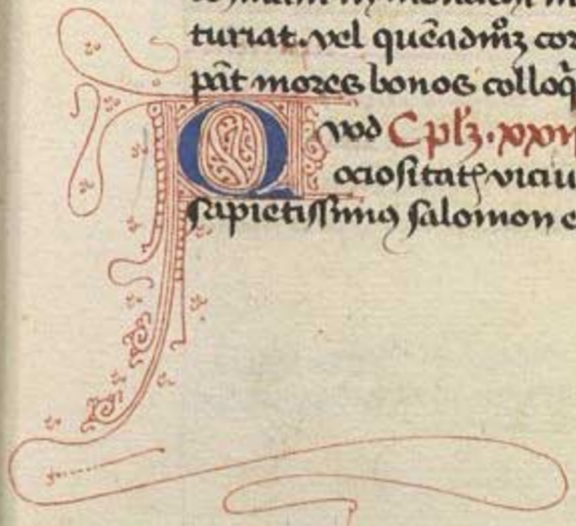 turiat. vel quēadmoꝫ cor
pāt mores bonos colloq̄
Quod Cplꝫ. xxii
ociositatꝭ viciu
sapiētissimꝰ salomon e